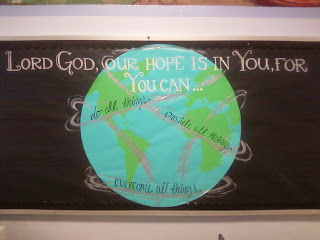 LORD GOD, OUR HOPE IS IN YOU, FOR
YOU CAN...
do all things,
provide all things,
overcome all things,